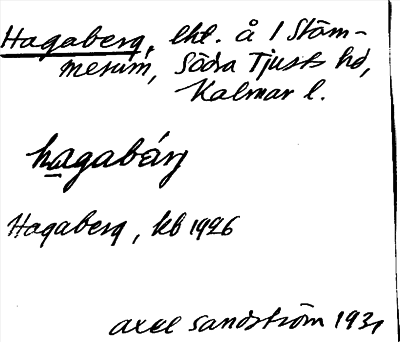 Hagaberg, lht. å 1 Stäm-
merum, Södra Tjusts hd,
Kalmar l.
hagabärj
Hagaberg, kb 1926
Axel Sandström 1931